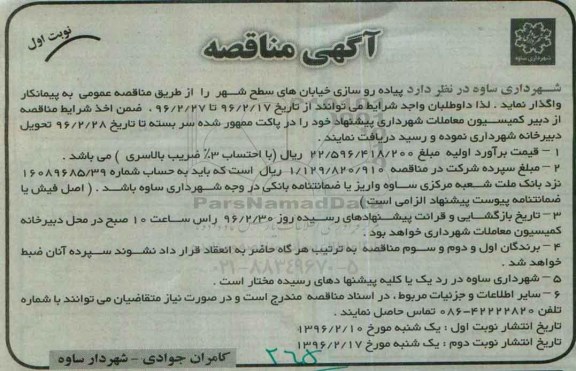 نوبت اول
آگهی مناقصه
شهرداری ساوه
شهرداری ساوه در نظر دارد پیاده رو سازی خیابان های سطح شهر را از طریق مناقصه عمومی به پیمانکار
واگذار نماید . لذا داوطلبان واجد شرایط می توانند از تاریخ ۹۶/۲/۱۷ تا ۹۶/۲/۲۷ ، ضمن اخذ شرایط مناقصه
از دبیر کمیسیون معاملات شهرداری پیشنهاد خود را در پاکت ممهور شده سر بسته تا تاریخ ۹۶/۲/۲۸ تحویل
دبیرخانه شهرداری نموده و رسید دریافت نمایند .
۱ – قیمت برآورد اولیه مبلغ ۲۲/۵۹۶/۴۱۸/۲۰۰ ریال (با احتساب ۳٪ ضریب بالاسری ) می باشد .
۲ – مبلغ سپرده شرکت در مناقصه ۱/۱۲۹/۸۲۰/۹۱۰ ریال است که باید به حساب شماره ۱۶۰۸۹۶۸۵/۳۹
نزد بانک ملت شعبه مرکزی ساوه واریز یا ضمانتنامه بانکی در وجه شهرداری ساوه باشد . ( اصل فیش یا
ضمانتنامه پیوست پیشنهاد الزامی است )
۳ – تاریخ بازگشایی و قرائت پیشنهادهای رسیده روز ۹۶/۲/۳۰ راس ساعت ۱۰ صبح در محل دبیرخانه
کمیسیون معاملات شهرداری خواهد بود .
۴ – برندگان اول و دوم و سوم مناقصه به ترتیب هر گاه حاضر به انعقاد قرار داد نشوند سپرده آنان ضبط
خواهد شد .
۵ – شهرداری ساوه در رد یک یا کلیه پیشنها دهای رسیده مختار است .
۶ – سایر اطلاعات و جزئیات مربوط ، در اسناد مناقصه مندرج است و در صورت نیاز متقاضیان می توانند با شماره
تلفن ۴۲۲۲۲۸۲۰-۰۸۶ تماس حاصل نمایند .
تاریخ انتشار نوبت اول : یک شنبه مورخ ۱۳۹۶/۲/۱۰
تاریخ انتشار نوبت دوم : یک شنبه مورخ ۱۳۹۶/۲/۱۷
کامران جوادی – شهردار ساوه
ParsNamadData
۰۲۱-۸۸۳۴۹۶۷۰-۵